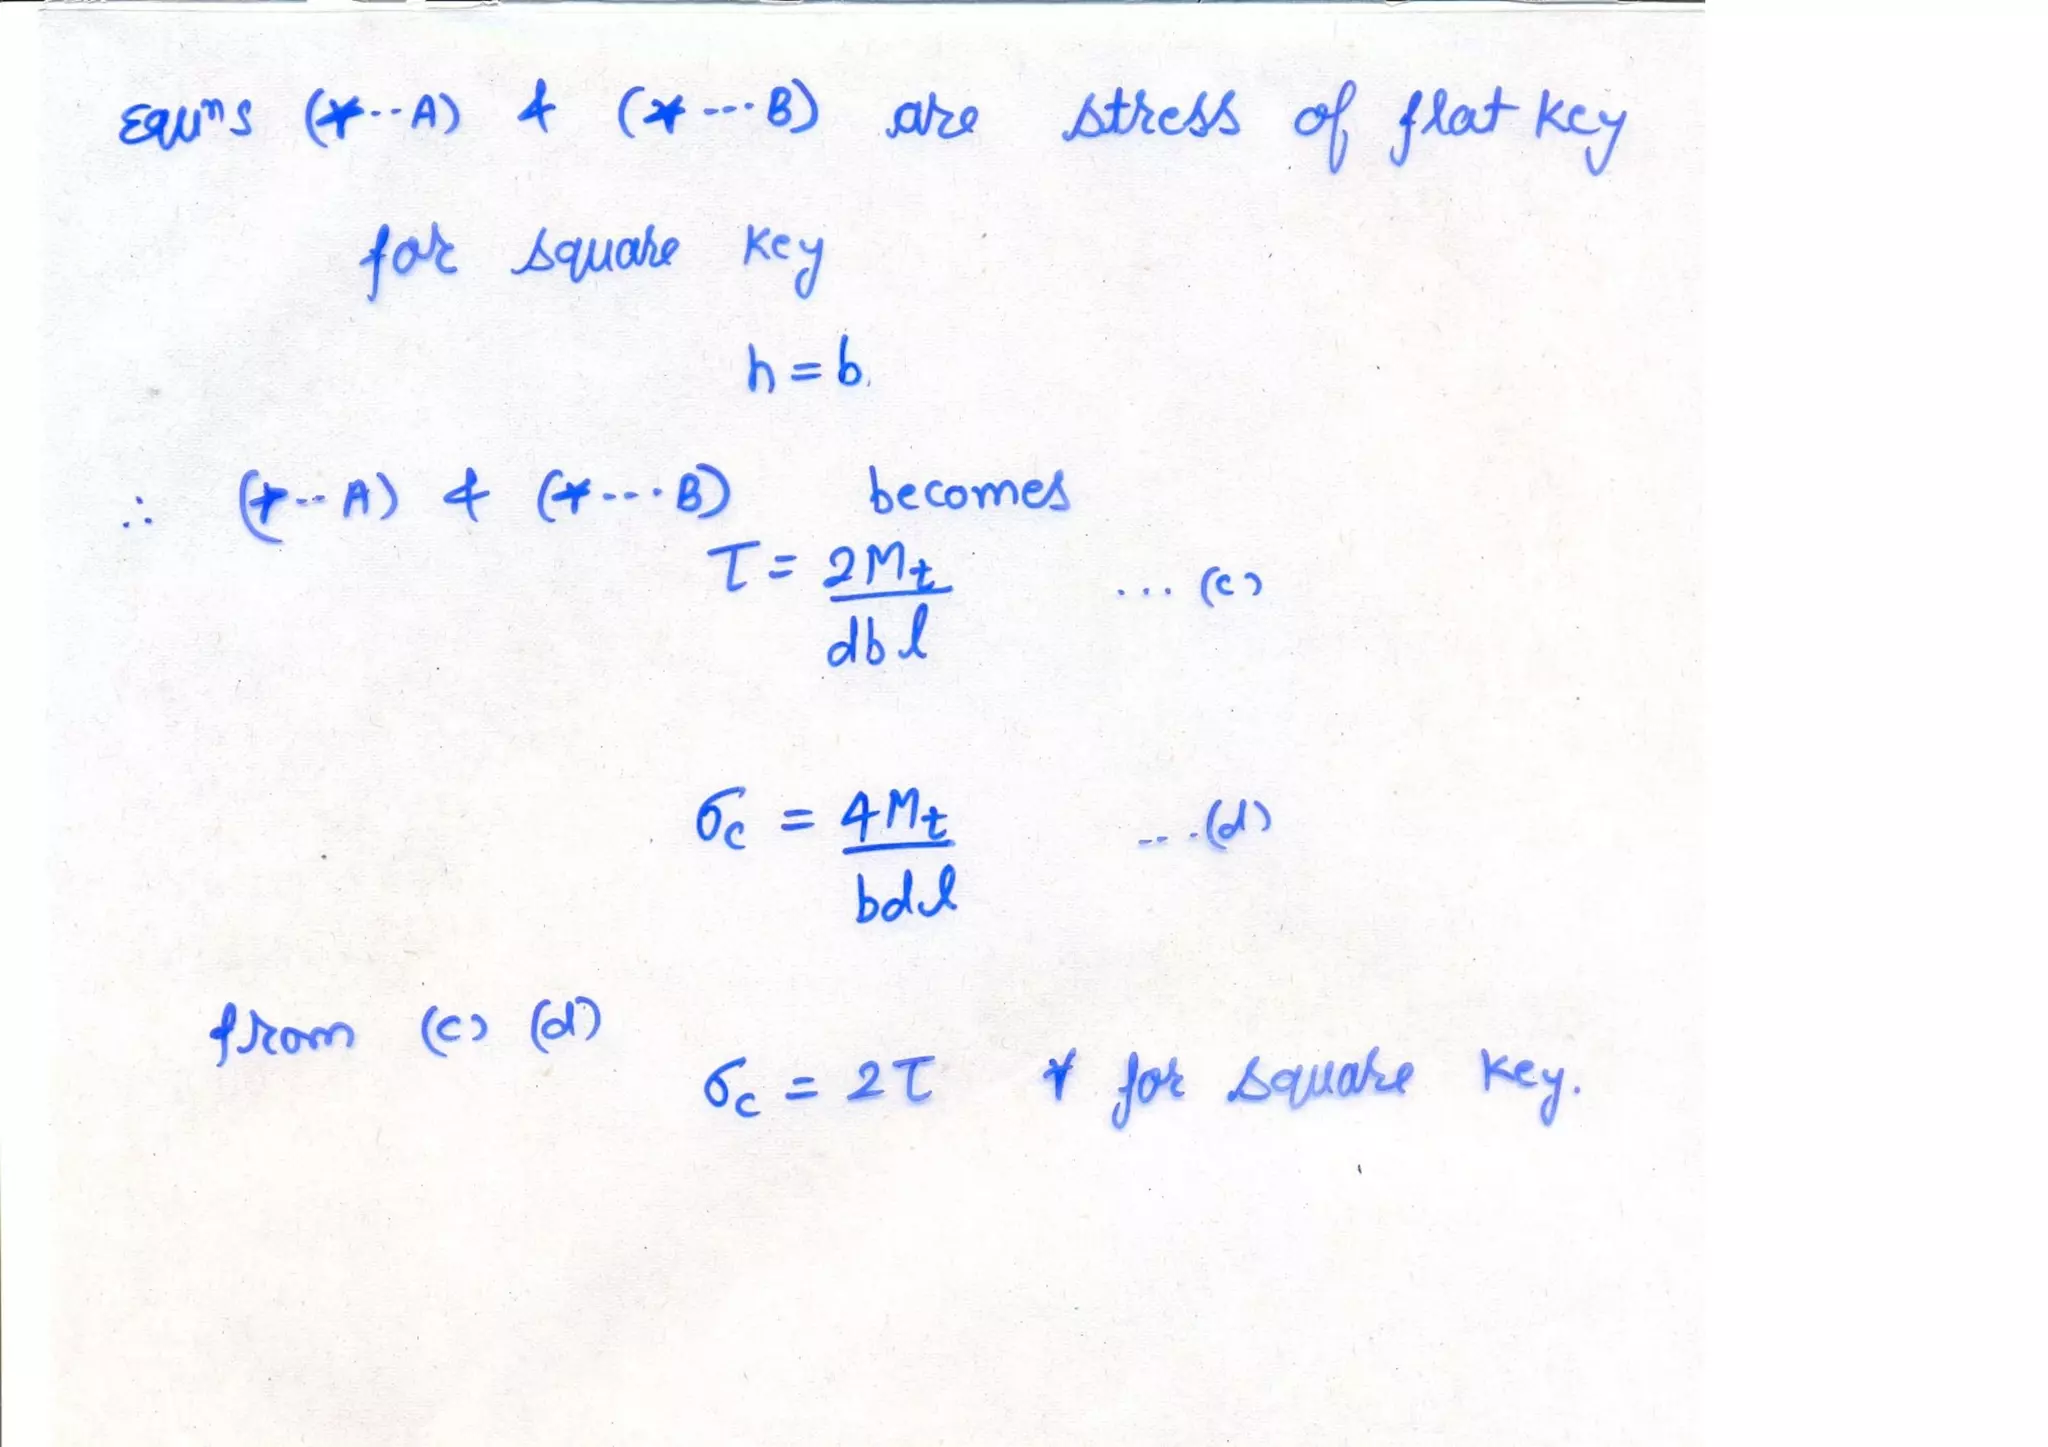 Equⁿs (*--A) & (*---B) are stress of flat key
for square key
h = b.
∴ (*--A) & (*---B) becomes
τ = 2Mt
dbl
... (c)
σc = 4Mt
bdl
... (d)
from (c) (d)
σc = 2τ * for square key.